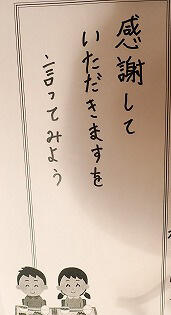 感謝して
いただきますを
言ってみよう